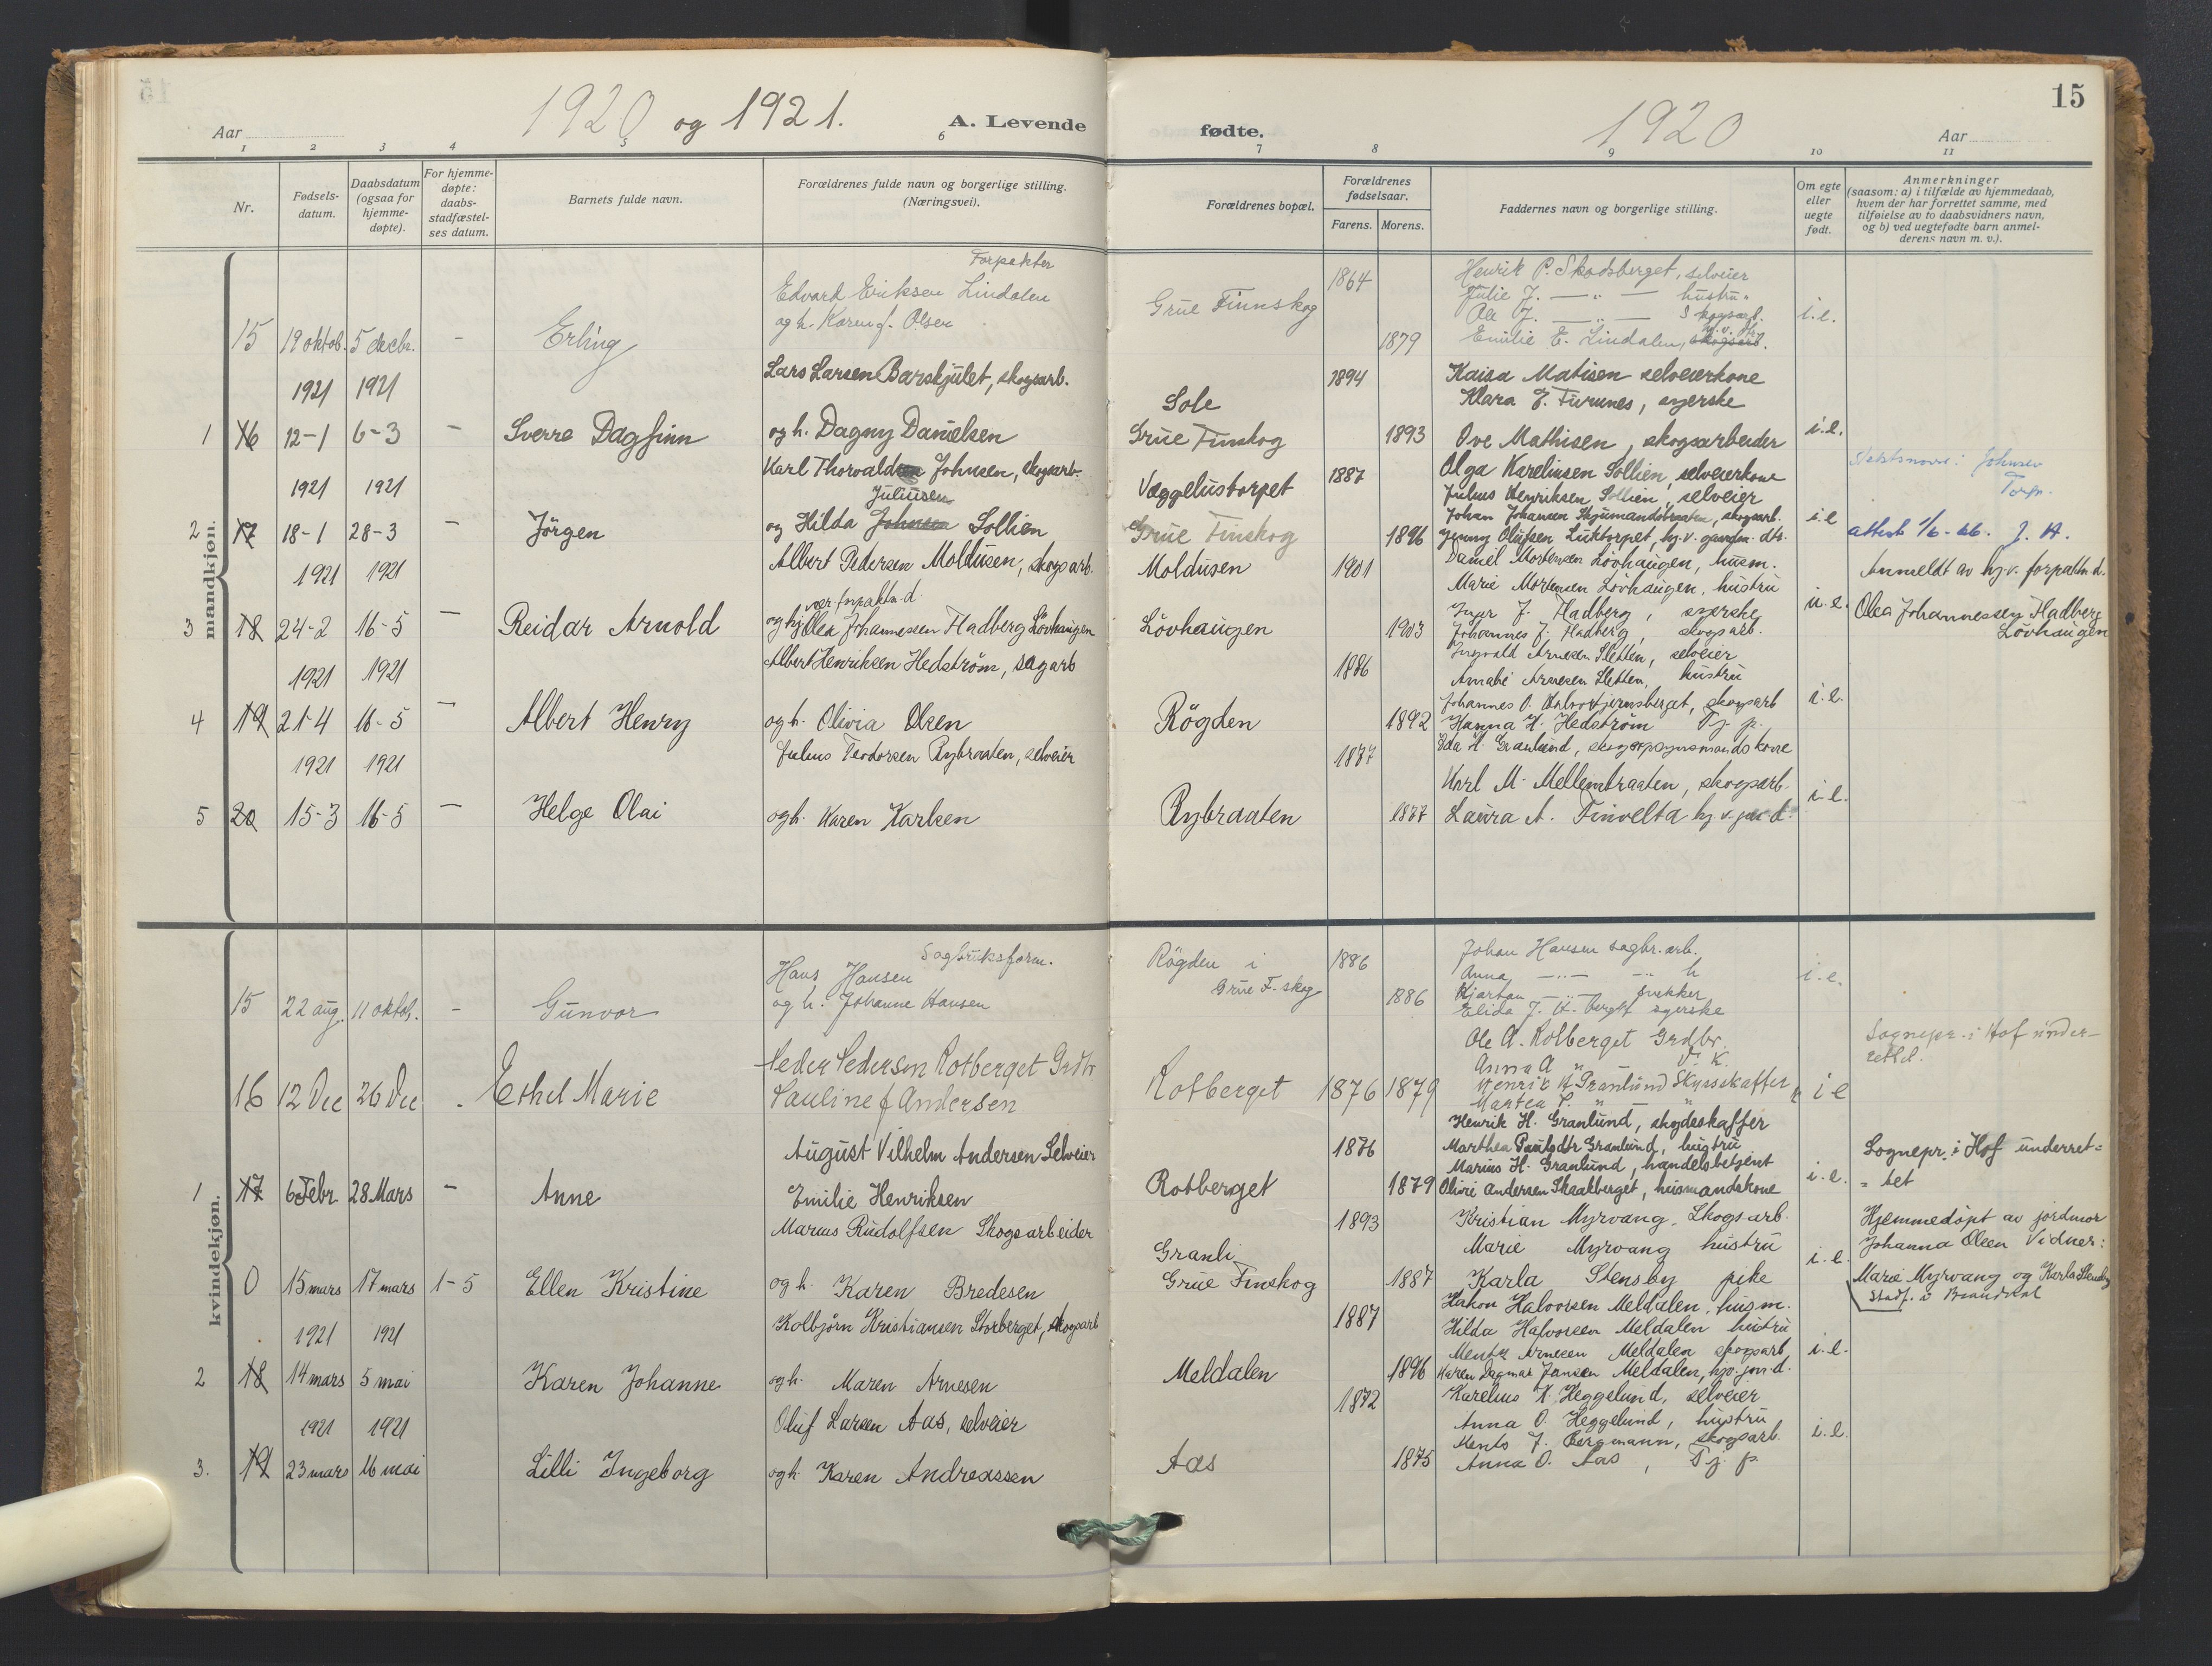 15
Aar
1920 og 1921.
A. Levende
fødte.
1920
Aar
1 2 3 4 5 6 7 8 9 10 11
Nr.
Fødsels-
datum.
Daabsdatum
(ogsaa for
hjemme-
døpte).
For hjemme-
døpte:
daabs-
stadfæstel-
ses datum.
Barnets fulde navn.
Forældrenes fulde navn og borgerlige stilling.
(Næringsvei).
Forældrenes bopæl.
Forældrenes
fødselsaar.
Farens. Morens.
Faddernes navn og borgerlige stilling.
Om egte
eller
uegte
født.
Anmerkninger
(saasom: a) i tilfælde av hjemmedaab,
hvem der har forrettet samme, med
tilføielse av to daabsvidners navn,
og b) ved uegtefødte barn anmel-
derens navn m. v.).
mandkjøn.
15 19 oktob. 5 decbr. - Erling
Forpakter
Edvard Eriksen Lindalen
og h. Karen f. Olsen
Grue Finnskog
1864
1879
Henrik P. Skodsberget, selveier
Julie J. — " — hustru
Ole J. — " — Skogsarb.
Emilie E. Lindalen, skogsarb.
i.e.
1921 1921
1 16 12-1 6-3 - Sverre Dagfinn
Lars Larsen Barskjulet, skogsarb.
og h. Dagny Danielsen
Sole
Grue Finskog
1894
1893
Kaisa Matisen selveierkone
Klara E. Furunes, syerske
Ove Mathisen, skogsarbeider
i.e.
1921 1921
2 17 18-1 28-3 - Jörgen
Karl Thorvald Johnsen, skogsarb.
Juliusen
og Hilda Johnsen Sollien
Væggelustorpet
Grue Finskog
1887
1896
Olga Karelinsen Sollien, selveierkone
Julius Henriksen Sollien, selveier
Johan Johansen Skjumandsbraaten, skogsarb.
Jenny Olufsen Luktorpet, hj.v. gaardm. dtr.
i.e
Johnsen
Torp.
attest 1/6-66. J. H.
1921 1921
3 18 24-2 16-5 - Reidar Arnold
Albert Pedersen Moldusen, skogsarb.
vær. forpaktn. d.
og hj. Olea Johannessen Hadberg Lövhaugen
Moldusen
Lövhaugen
1901
1903
Daniel Mortensen Lövhaugen, husm.
Marie Mortensen Lövhaugen, hustru
Inger J. Hadberg, syerske
Johannes J. Hadberg, skogsarb.
u.e.
Anmeldt av hj.v. forpaktn d.
Olea Johannessen Hadberg
Lövhaugen
1921 1921
4 19 21-4 16-5 - Albert Henry
Albert Henriksen Hedström, sagarb
og h. Olivia Olsen
Rögden
1886
1892
Ingvald Arnesen Sletten, selveier
Amalie Arnesen Sletten, hustru
Johannes O. skogsarb
Hanna H. Hedström Tj. p.
i.e.
1921 1921
5 20 15-3 16-5 - Helge Olai
Julius Teodorsen Rybraaten, selveier
og h. Karen Karlsen
Rybraaten
1877
1877
Ida H. Granlund, skogopsynsmandskone
Karl M. Mellembraaten, skogsarb.
Laura A. Tinvelta hj.v. d.
i.e.
kvindekjøn.
15 22 aug. 11 oktob. - Gunvor
Sagbruksform.
Hans Hansen
og h. Johanne Hansen
Rögden i
Grue F. skog
1886
1886
Johan Hansen sagbr. arb.
Anna — " — " h
Kjartan — " — snekker
Elida J. K. Berget syerske
i.e.
16 12 Dec 26 Dec - Ethel Marie
Peder Pedersen Rotberget Grdbr
Pauline f Andersen
Rotberget
1876 1879
Ole A. Rotberget Grdbr.
Anna A " " K.
Henrik H Granlund Skysskaffer
Martea P. " — "
i e
Sognepr. i Hof under-
rettet.
1 17 6 Febr. 28 Mars - Anne
August Vilhelm Andersen Selveier
Emilie Henriksen
Rotberget
1876
1879
Henrik H. Granlund, skydsskaffer
Marthea Paulsdtr Granlund, hustru
Marius H. Granlund, handelsbetjent
Olive Andersen Skaalberget, husmandskone
i.e.
Sognepr. i Hof underret-
tet
0 15 mars 17 mars 1-5 Ellen Kristine
Marius Rudolfsen Skogsarbeider
og h. Karen Bredesen
Granli
Grue Finskog
1893
1887
Kristian Myrvang, Skogsarb.
Marie Myrvang hustru
Karla Stensby pike
i.e.
Hjemmedöpt av jordmor
Johanna Olsen Vidner:
Marie Myrvang og Karla Stensby
Stadf. i Brandval
1921 1921
2 18 14 mars 5 mai Karen Johanne
Kolbjörn Kristiansen Storberget, skogsarb
og h. Maren Arnesen
Meldalen
1887
1896
Haakon Halvorsen Meldalen, husm.
Hilda Halvorsen Meldalen hustru
Mentz Arnesen Meldalen skogsarb
Karen Dagmar Jansen Meldalen, hjv. jor. d.
i.e.
1921 1921
3. 19 23 mars 16 mai Lilli Ingeborg
Oluf Larsen Aas, selveier
og h. Karen Andreassen
Aas
1872
1875
Karelius K. Heggelund, selveier
Anna O. Heggelund, hustru
Mentz J. Bergmann, skogsarb.
Anna O. Aas, Tj. p.
i.e.